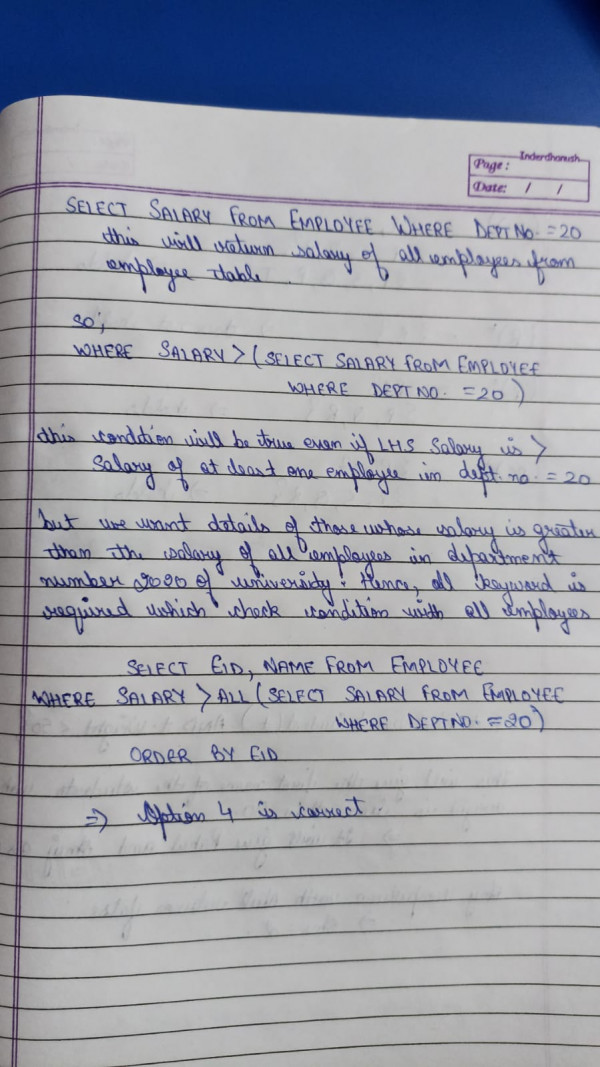 Inderdhanush
Page:
Date: / /
SELECT SALARY FROM EMPLOYEE WHERE DEPT NO. = 20
this will return salary of all employees from
employee table.
so,
WHERE SALARY > (SELECT SALARY FROM EMPLOYEE
WHERE DEPT NO. = 20)
this condition will be true even if LHS salary is >
salary of at least one employee in dept. no. = 20
but we want details of those whose salary is greater
than the salary of all employees in department
number 2020 of university. Hence, all keyword is
required which check condition with all employees
SELECT EID, NAME FROM EMPLOYEE
WHERE SALARY > ALL (SELECT SALARY FROM EMPLOYEE
WHERE DEPT NO. = 20)
ORDER BY EID
⇒ Option 4 is correct